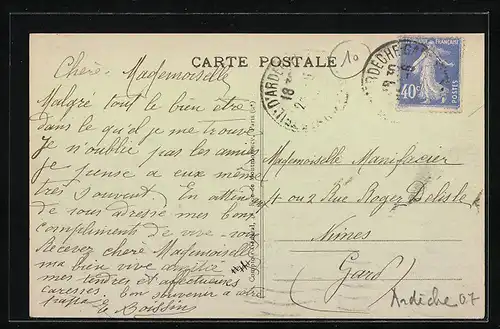 CARTE POSTALE
10
D'ARDÈCHE
18
ARDECHE
FRANÇAISE
40c
POSTES
Chère Mademoiselle
Malgré tout le bien être
dans le qu'el je me trouve
Je n'oublie pas les amies
Je pense a eux même
très souvent. En atten
de vous adresse mes bons
compliments de vive-voix
Recevez chère Mademoiselle
ma bien vive amitié
mes tendres et affectueuses
caresses bon souvenir a votre
le Boissin
Mademoiselle
4 ou 2 Rue Roger Délisle
Nimes
Gard
Ardèche 07